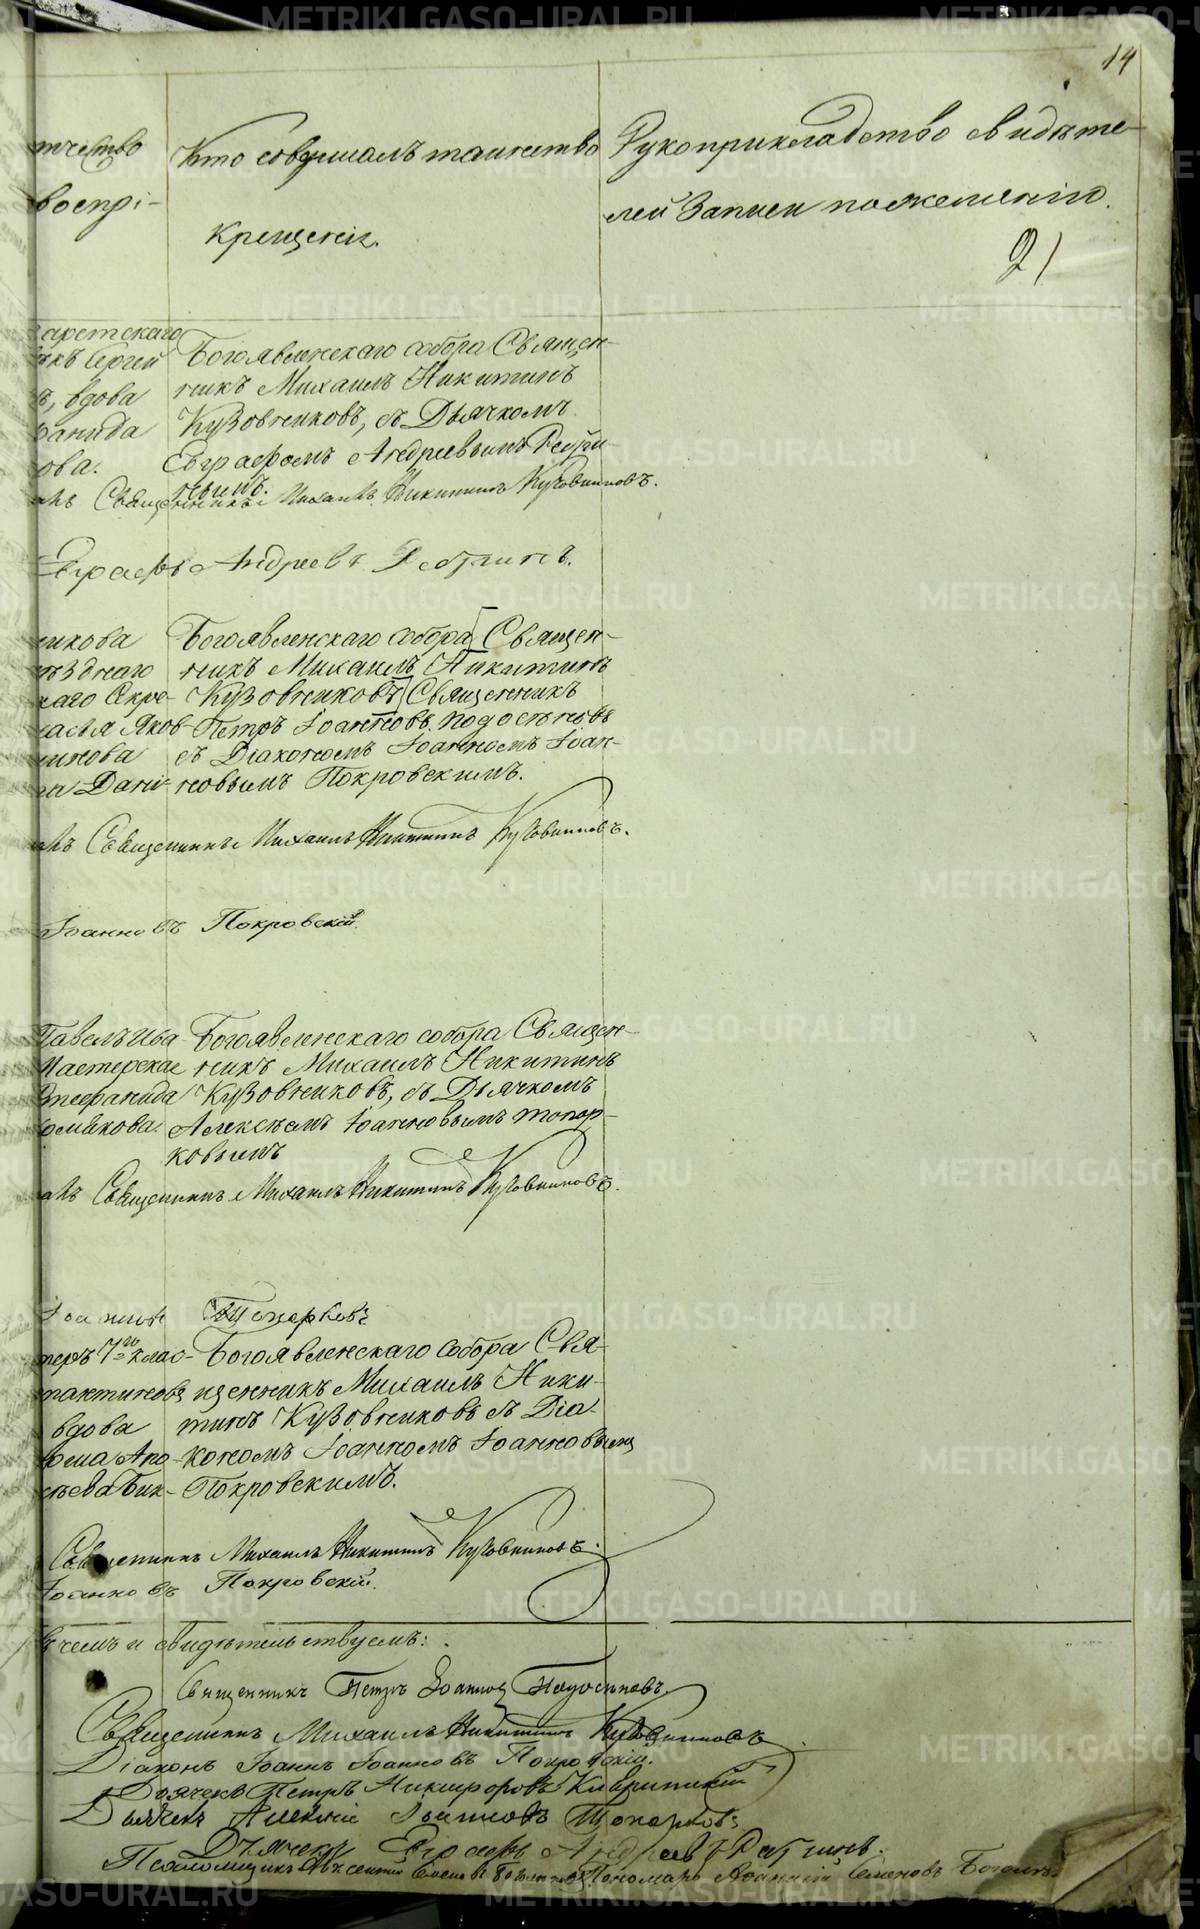 14
тчество
воспрі-
Кто совершалъ таинство
крещенія.
Рукоприкладство свидѣте-
лей записи по желанію.
21
аретскаго
Сергей
вдова
анида
ова.
Богоявленскаго собора Священ-
никъ Михаилъ Никитинъ
Кузовниковъ, съ Дьячкомъ
Евграфомъ Андреевымъ
Священникъ Михаилъ Никитинъ Кузовниковъ.
Евграфъ Андреевъ
никова
ѣзднаго
каго Секре-
Яков-
инова
Дани-
Богоявленскаго собора [Священ-
никъ Михаилъ Никитинъ
Кузовниковъ] Священникъ
Петръ Іоанновъ Подосеновъ
съ Діакономъ Іоанномъ Іоан-
новымъ Покровскимъ.
Священникъ Михаилъ Никитинъ Кузовниковъ.
Іоанновъ Покровскій.
Павелъ Ива-
Мастерская
Стефанида
омякова.
Богоявленскаго собора Священ-
никъ Михаилъ Никитинъ
Кузовниковъ, съ Дьячкомъ
Алексѣемъ Іоанновымъ Топор-
ковымъ
Священникъ Михаилъ Никитинъ Кузовниковъ.
Топорковъ
теръ 7го клас-
тантиновъ
вдова
Богоявленскаго собора Свя-
щенникъ Михаилъ Ники-
тинъ Кузовниковъ съ Діа-
кономъ Іоанномъ Іоанновымъ
Покровскимъ.
Священникъ Михаилъ Никитинъ Кузовниковъ.
Іоанновъ Покровскій.
въ чемъ и свидѣтельствуемъ:
Священникъ Петръ Іоанновъ Подосеновъ.
Священникъ Михаилъ Никитинъ Кузовниковъ
Діаконъ Іоаннъ Іоанновъ Покровскій.
Дьячекъ Петръ Никифоровъ
Дьячекъ Алексій Іоанновъ Топорковъ
Дьячекъ Евграфъ Андреевъ
Псаломщикъ Пономарь Семеновъ
METRIKI.GASO-URAL.RU